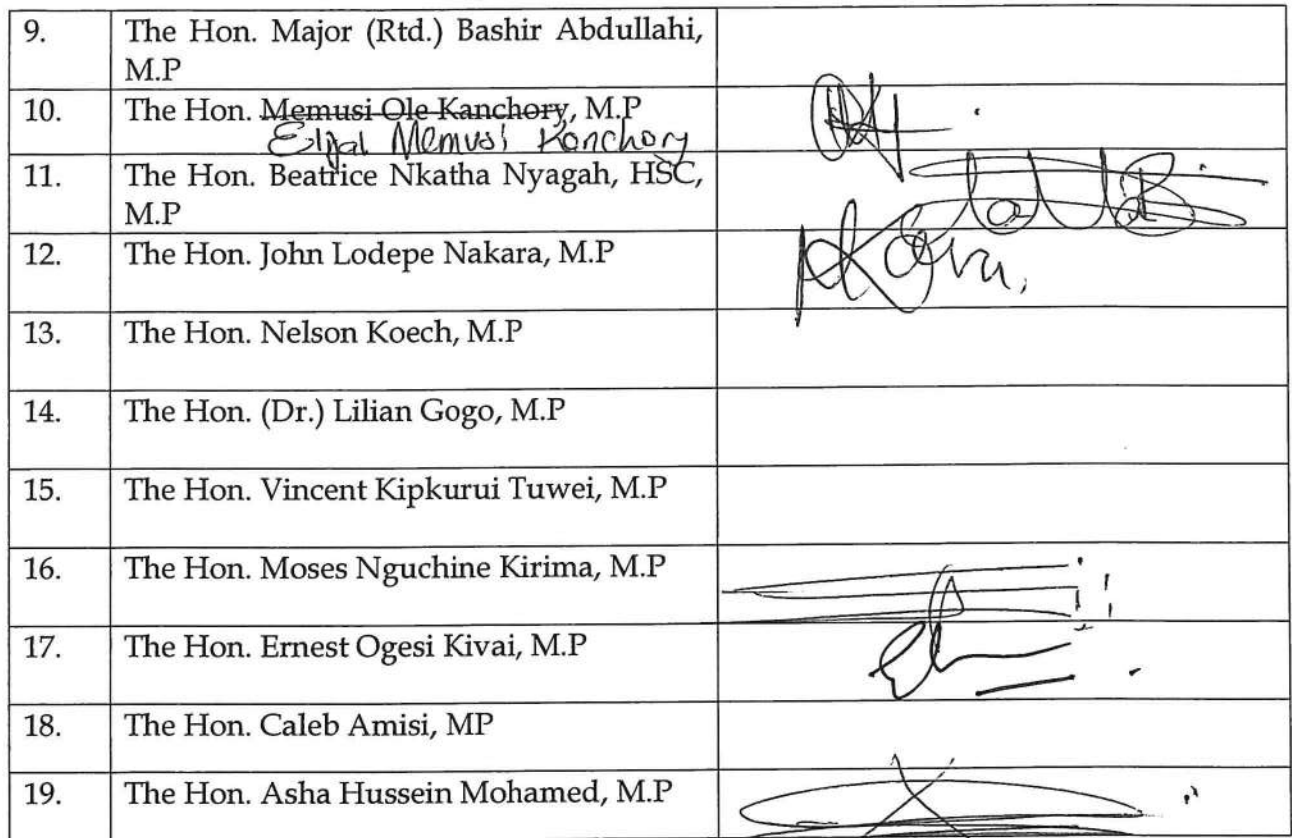 9. The Hon. Major (Rtd.) Bashir Abdullahi,
M.P
10. The Hon. Memusi Ole Kanchory, M.P
Memusi Kanchory
11. The Hon. Beatrice Nkatha Nyagah, HSC,
M.P
12. The Hon. John Lodepe Nakara, M.P
13. The Hon. Nelson Koech, M.P
14. The Hon. (Dr.) Lilian Gogo, M.P
15. The Hon. Vincent Kipkurui Tuwei, M.P
16. The Hon. Moses Nguchine Kirima, M.P
17. The Hon. Ernest Ogesi Kivai, M.P
18. The Hon. Caleb Amisi, MP
19. The Hon. Asha Hussein Mohamed, M.P